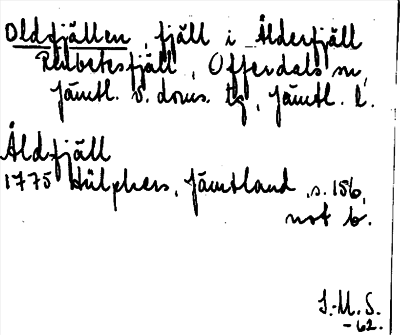 Oldfjällen, fjäll i Ålderfjäll
Renbetesfjäll, Offerdals sn,
Jämtl. v. doms. tg, Jämtl. l.
Åldfjäll
1775 Hülphers, Jämtland, s. 156,
not b.
J.M.S.
-62.